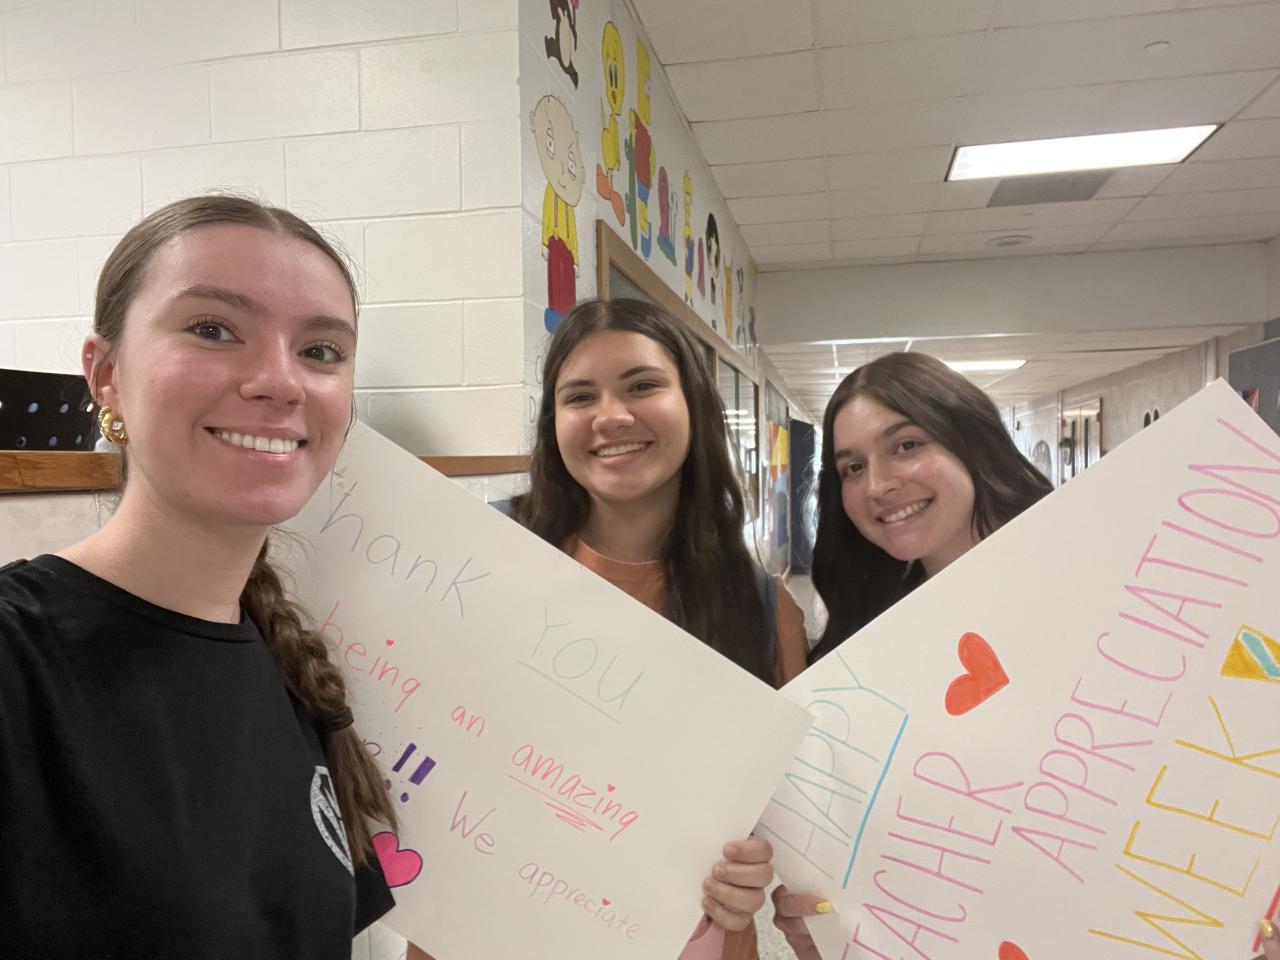 Thank YOU
being an amazing
!! We appreciate
HAPPY
TEACHER
APPRECIATION
WEEK